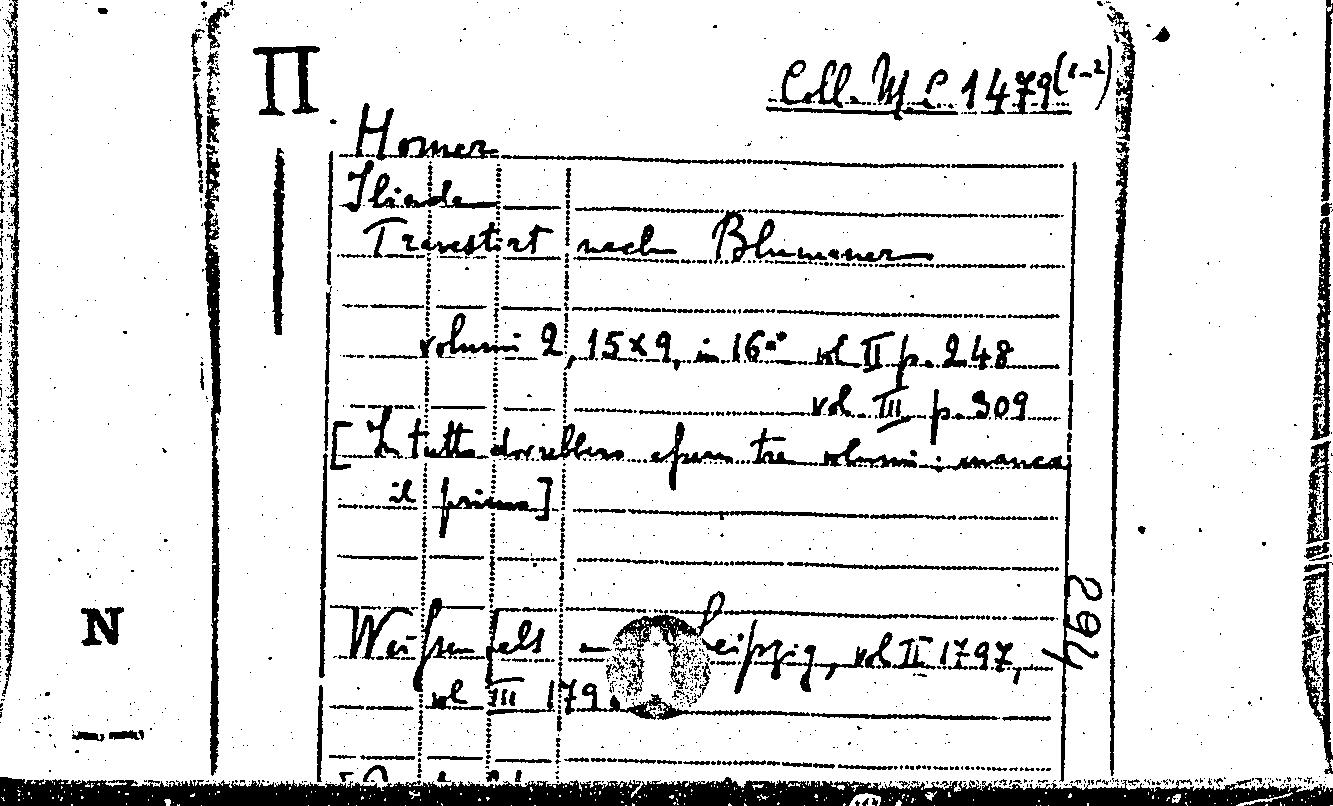 Π
Coll. M. L 1479 (1-2)
Homer
Iliade
Travestirt nach Blumauer
volumi 2, 15 x 9, in 16° vol II p. 248
vol. III p. 309
[In tutto dovrebbero essere tre volumi: manca
il primo]
Weissenfels Leipzig, vol II 1797,
vol III 179
294
N